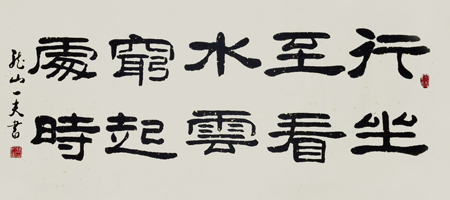 行至水窮處
坐看雲起時
龍山一夫書